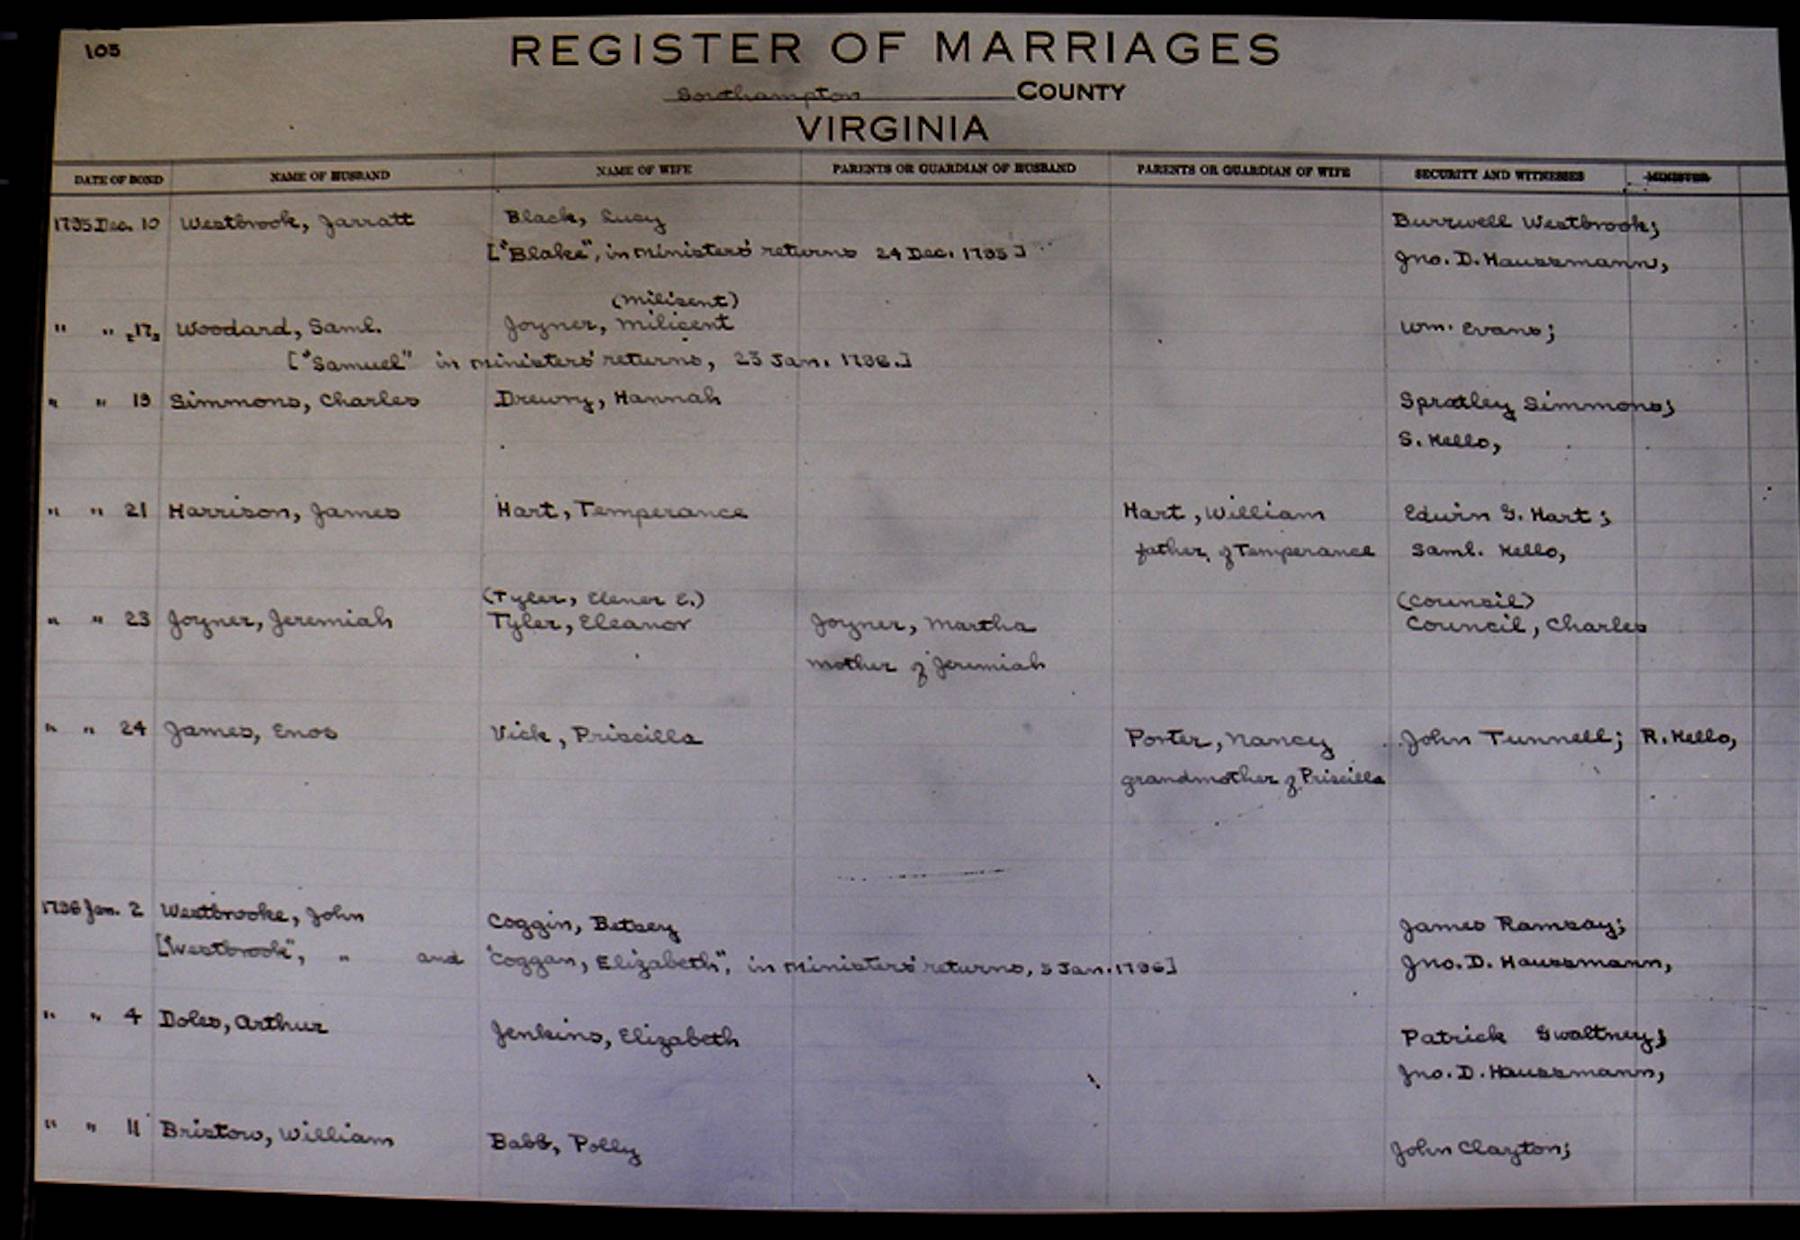 105
REGISTER OF MARRIAGES
Southampton COUNTY
VIRGINIA
DATE OF BOND NAME OF HUSBAND NAME OF WIFE PARENTS OR GUARDIAN OF HUSBAND PARENTS OR GUARDIAN OF WIFE SECURITY AND WITNESSES MINISTER
1795 Dec. 10 Westbrook, Jarratt Black, Lucy Burrwell Westbrook;
["Blake", in ministers' returns 24 Dec. 1795] Jno. D. Haussmann,
(Milisent)
" " 17, Woodard, Saml. Joyner, Milicent Wm. Evans;
["Samuel" in ministers' returns, 23 Jan. 1796.]
" " 19 Simmons, Charles Drewry, Hannah Spratley Simmons;
S. Kello,
" " 21 Harrison, James Hart, Temperance Hart, William Edwin G. Hart;
father of Temperance Saml. Kello,
(Tyler, Elener E.) (Counsil)
" " 23 Joyner, Jeremiah Tyler, Eleanor Joyner, Martha Council, Charles
mother of Jeremiah
" " 24 James, Enos Vick, Priscilla Porter, Nancy John Tunnell; R. Kello,
grandmother of Priscilla
1796 Jan. 2 Westbrooke, John Coggin, Betsey James Ramsay;
["Westbrook", " and "Coggan, Elizabeth", in ministers' returns, 5 Jan. 1796] Jno. D. Haussmann,
" " 4 Doles, Arthur Jenkins, Elizabeth Patrick Gwaltney;
Jno. D. Haussmann,
" " 11 Bristow, William Babb, Polly John Clayton;